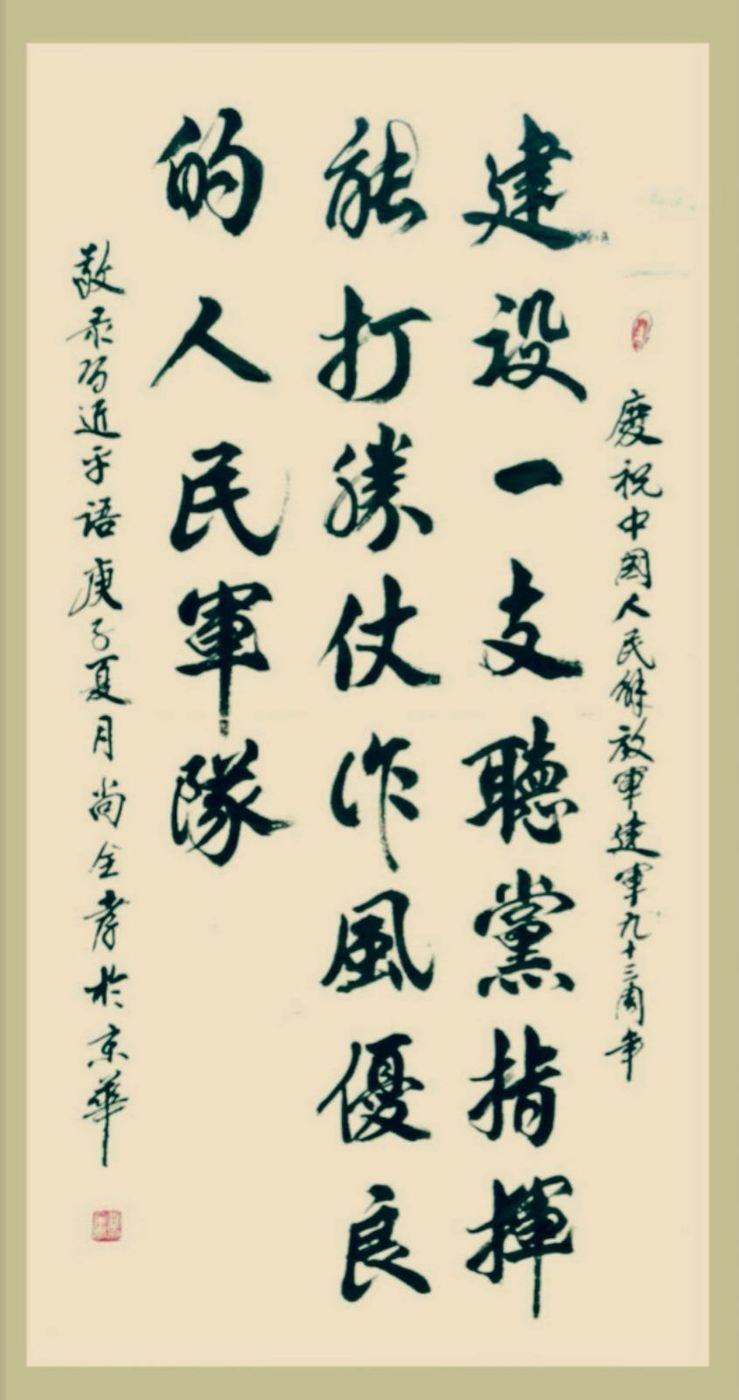 慶祝中國人民解放軍建軍九十三周年
建設一支聽黨指揮
能打勝仗作風優良
的人民軍隊
敬录习近平语庚子夏月尚全孝於京華